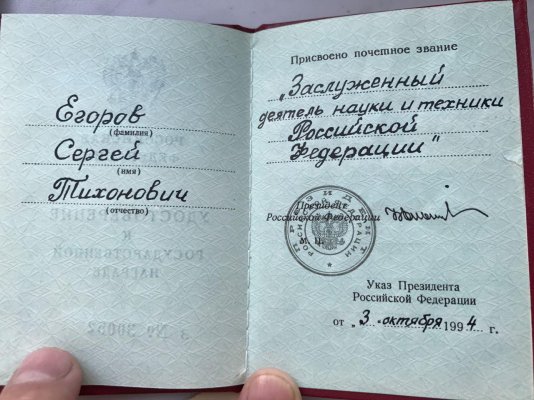 Егоров
(фамилия)
Сергей
(имя)
Тихонович
(отчество)
Присвоено почетное звание
„Заслуженный
деятель науки и техники
Российской
Федерации"
Президент
Российской Федерации
М. П.
Указ Президента
Российской Федерации
от „3 " октября 1994 г.
УДОСТОВЕРЕНИЕ
К
ГОСУДАРСТВЕННОЙ
НАГРАДЕ
З № 30052